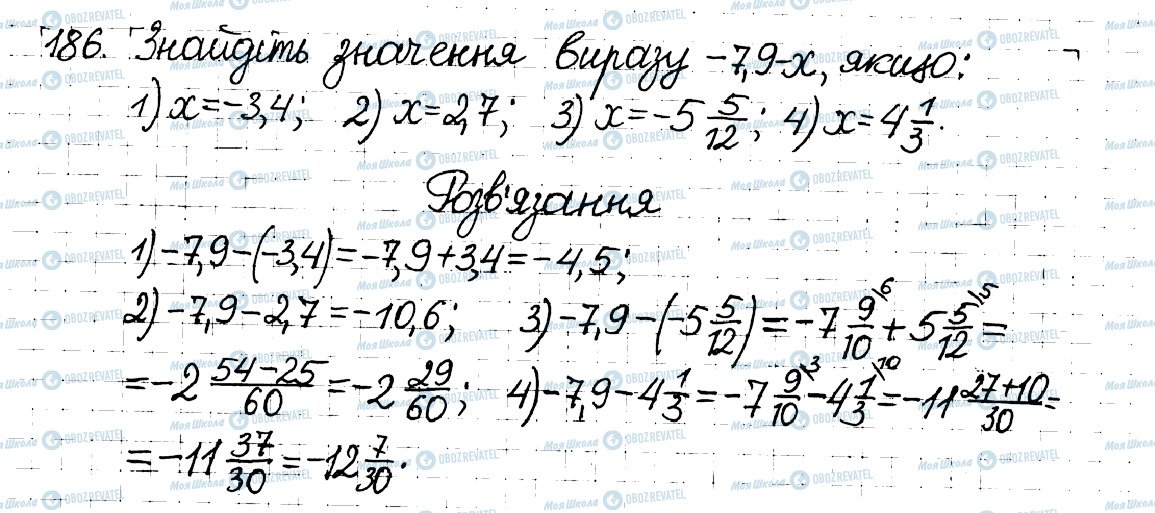 186. Знайдіть значення виразу -7,9-x, якщо:
1) x=-3,4; 2) x=2,7; 3) x=-5 5/12; 4) x=4 1/3.
Розв'язання
1) -7,9-(-3,4)=-7,9+3,4=-4,5;
2) -7,9-2,7=-10,6; 3) -7,9-(-5 5/12)=-7 9/10\6+5 5/12\5=
=-2 54-25/60=-2 29/60; 4) -7,9-4 1/3=-7 9/10\3-4 1/3\10=-11 27+10/30=
=-11 37/30=-12 7/30.